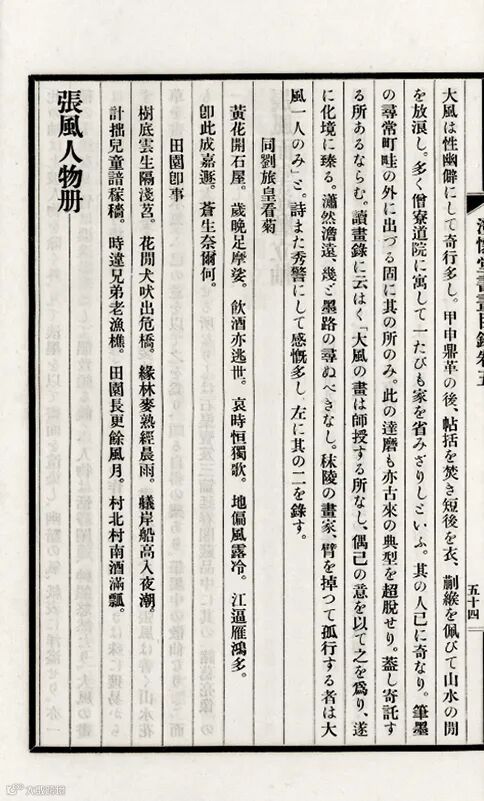 澄懷堂書畫目錄卷五
五十四
大風は性幽僻にして奇行多し。甲申鼎革の後、帖括を焚き短後を衣、蒯緱を佩びて山水の間
を放浪し。多く僧寮道院に寓して一たびも家を省みざりしといふ。其の人已に奇なり。筆墨
の尋常町畦の外に出づる固に其の所のみ。此の達磨も亦古來の典型を超脫せり。葢し寄託す
る所あるならむ。讀畫錄に云はく「大風の畫は師授する所なし、偶己の意を以て之を爲り、遂
に化境に臻る。瀟然澹遠、幾ど墨路の尋ぬべきなし。秣陵の畫家、臂を掉つて孤行する者は大
風一人のみ」と。詩また秀警にして感慨多し、左に其の二を錄す。
同劉旅皇看菊
黃花開石屋。歲晚足摩挲。飮酒亦逃世。哀時恒獨歌。地偏風露冷。江逼雁鴻多。
卽此成嘉遯。蒼生奈爾何。
田園卽事
樹底雲生隔淺茗。花閒犬吠出危橋。緣林麥熟經晨雨。艤岸船高入夜潮。
計拙兒童諳稼穡。時違兄弟老漁樵。田園長更餘風月。村北村南酒滿瓢。
張風人物册